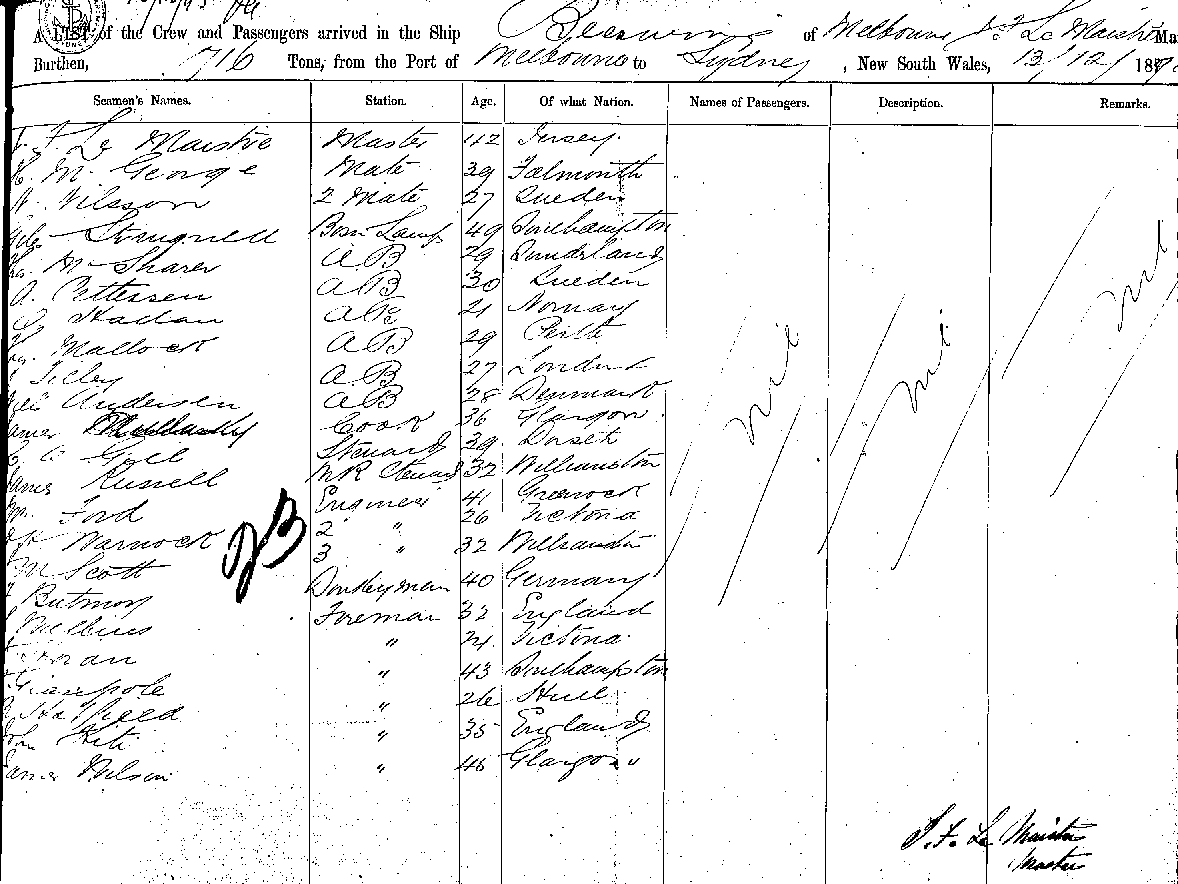 A LIST of the Crew and Passengers arrived in the Ship of Melbourne J. F. Le Maistre
Burthen, 716 Tons, from the Port of Melbourne to Sydney, New South Wales, 13/12/
Seamen's Names. Station. Age. Of what Nation. Names of Passengers. Description. Remarks.
J. F Le Maistre Master 42 Jersey.
Mc George Mate 29 Falmouth
N. Nilsson 2 Mate 27 Sueden
Strugnell Bosn Lamps 49 Southampton
McSharer AB 29 Sunderland
A. Pettersen AB 30 Sueden
AB 21 Norway
Mallock AB 29 Perth
Tilley AB 27 London
Andersen AB 28 Denmark
James Cook 36 Glasgow
Gill Steward 39 Dorset
James Russell Steward 32 Williamston
Ford Engineer 41 Greenock
Warnock 2 " 26 Victoria
Wm Scott 3 " 32
Donkeyman 40 Germany
Fireman 32 England
" 21 Victoria
" 43 Southampton
" 26 Hull
John " 35 England
James Wilson " 45 Glasgow "
nil nil nil
J. F. Le Maistre
Master